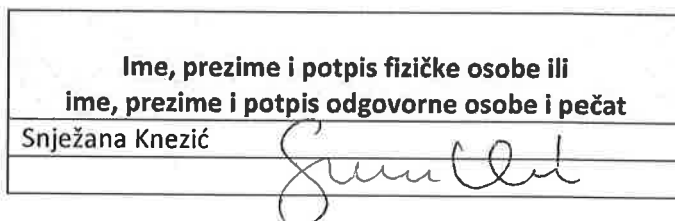 Ime, prezime i potpis fizičke osobe ili
ime, prezime i potpis odgovorne osobe i pečat
Snježana Knezić